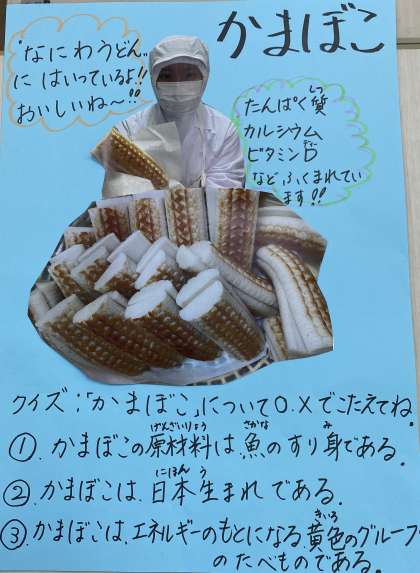 かまぼこ
"なにわうどん"
に はいっているよ!!
おいしいね〜!!
たんぱく質
しつ
カルシウム
ビタミンD
でぃー
など ふくまれてい
ます!!
クイズ:「かまぼこ」について○.×でこたえてね.
げんざいりょう さかな み
①.かまぼこの原材料は.魚のすり身である.
にほん う
②.かまぼこは.日本生まれである.
きいろ
③.かまぼこは.エネルギーのもとになる.黄色のグループ
のたべものである.